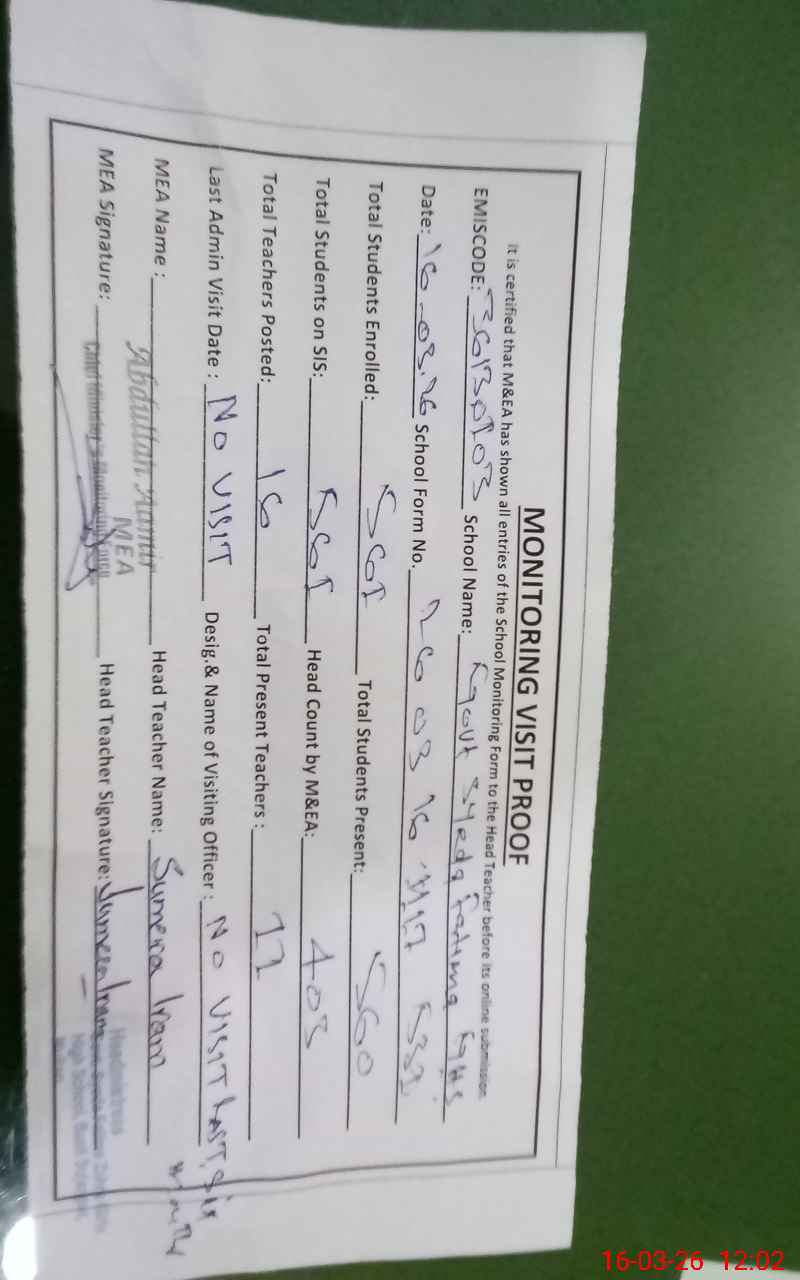 MONITORING VISIT PROOF
It is certified that M&EA has shown all entries of the School Monitoring Form to the Head Teacher before its online submission
EMISCODE: School Name: Govt Syeda Fatima GHS
Date: 16-03-26 School Form No.
Total Students Enrolled: 561 Total Students Present: 560
Total Students on SIS: 561 Head Count by M&EA: 403
Total Teachers Posted: 16 Total Present Teachers: 11
Last Admin Visit Date: No VISIT Desig.& Name of Visiting Officer: No VISIT LAST Six
MEA Name: Abdullah Aamir Head Teacher Name: Sumera Iram
MEA
MEA Signature: Head Teacher Signature:
Headmistress
High School
16-03-26 12:02